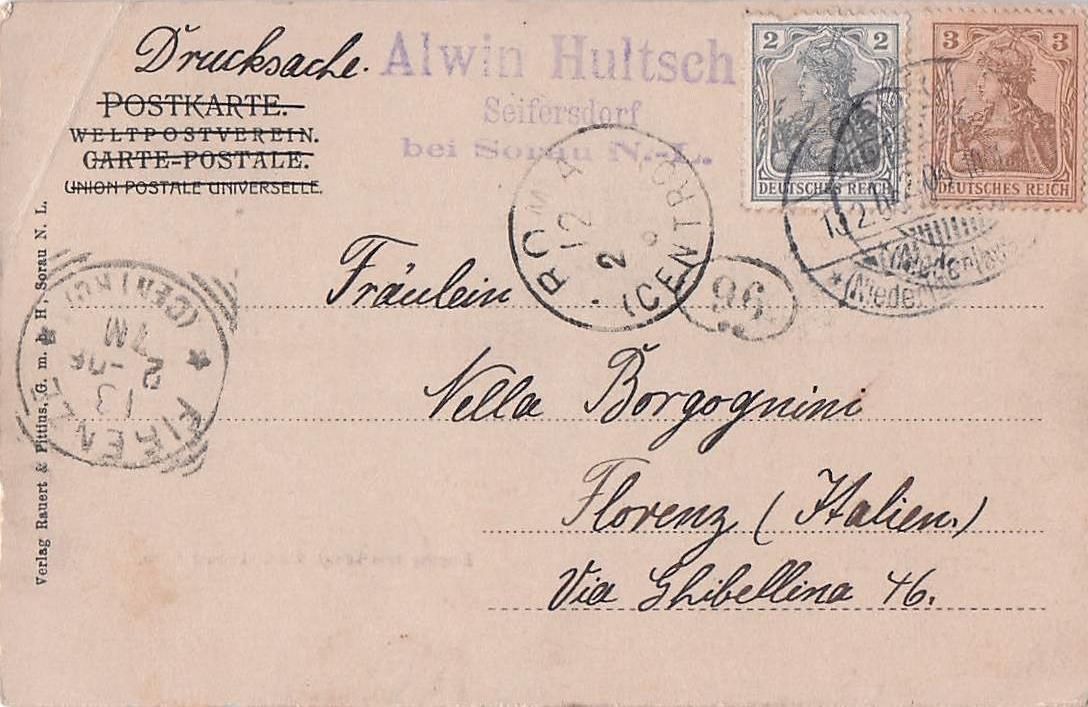 Drucksache.
Alwin Hultsch
Seifersdorf
bei Sorau N.-L.
POSTKARTE.
WELTPOSTVEREIN.
CARTE-POSTALE.
UNION POSTALE UNIVERSELLE.
2 2
DEUTSCHES REICH
3 3
DEUTSCHES REICH
ROMA (CENTRO)
12
2
(Niederlausitz)
96
FIRENZE (CENTRO)
13
2-06
7M
Fräulein
Nella Borgognini
Florenz (Italien.)
Via Ghibellina 46.
Verlag Rauert & Pittius, G. m. b. H., Sorau N. L.